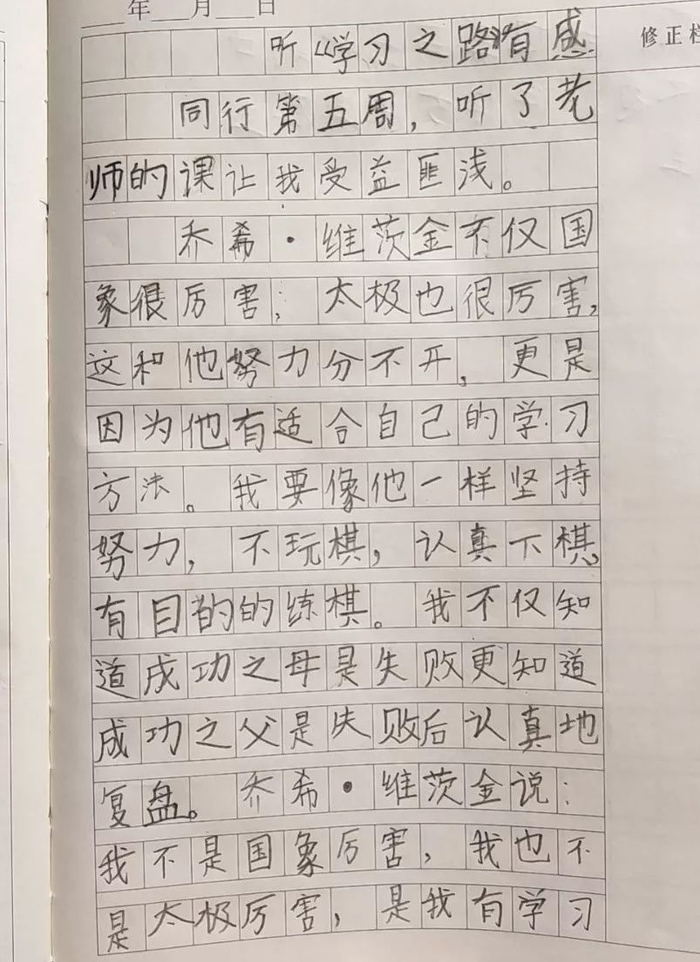 年 月 日
修正栏
听《学习之路》有感
同行第五周，听了老
师的课让我受益匪浅。
乔希·维茨金不仅国
象很厉害；太极也很厉害，
这和他努力分不开，更是
因为他有适合自己的学习
方法。我要像他一样坚持
努力，不玩棋，认真下棋，
有目的的练棋。我不仅知
道成功之母是失败更知道
成功之父是失败后认真地
复盘。乔希·维茨金说：
我不是国象厉害，我也不
是太极厉害，是我有学习